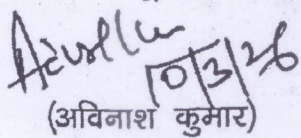 10/3/26
(अविनाश कुमार)